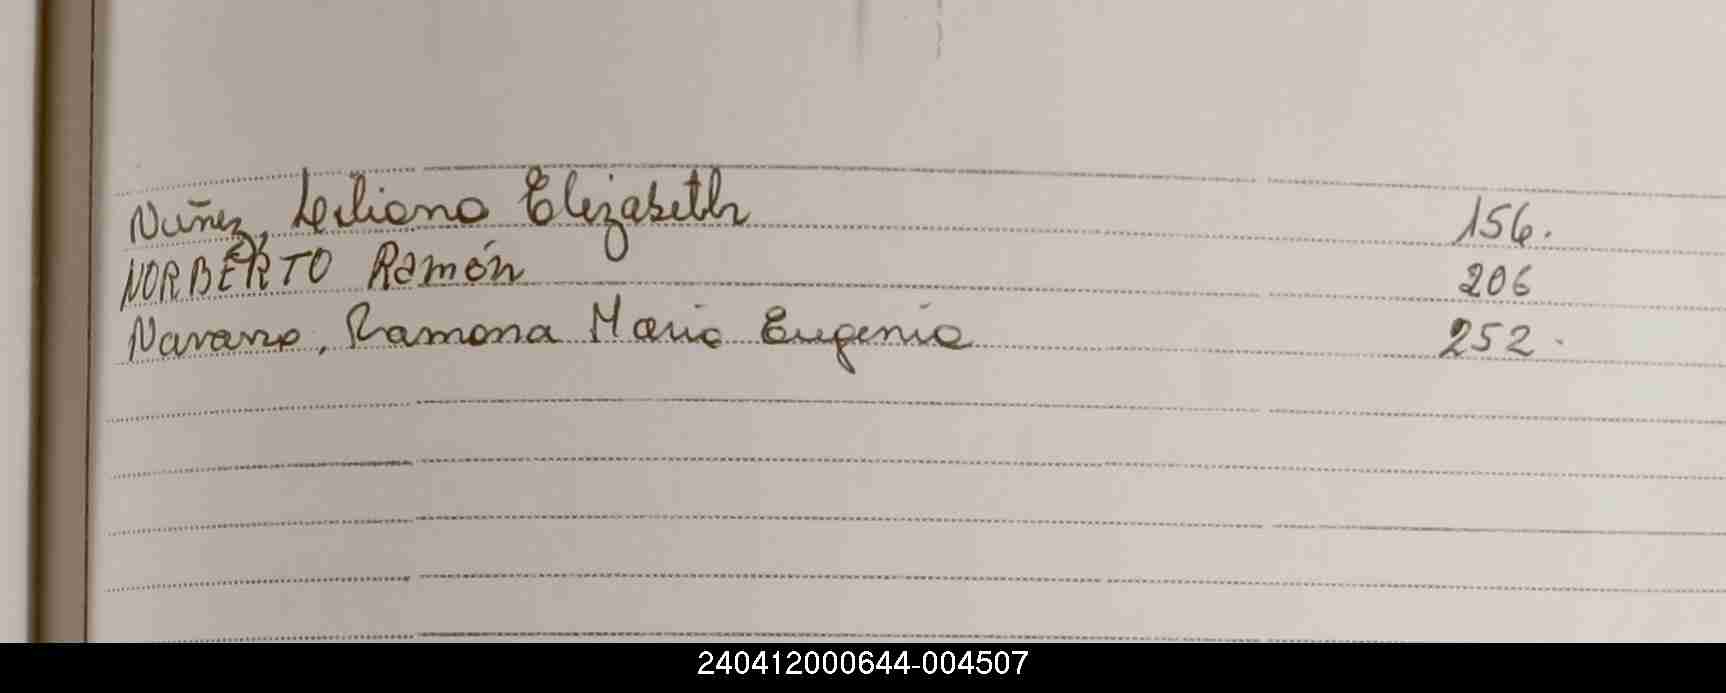 Nuñez, Liliana Elizabeth 156.
NORBERTO Ramón 206
Navarro, Ramona Maria Eugenia 252.
240412000644-004507